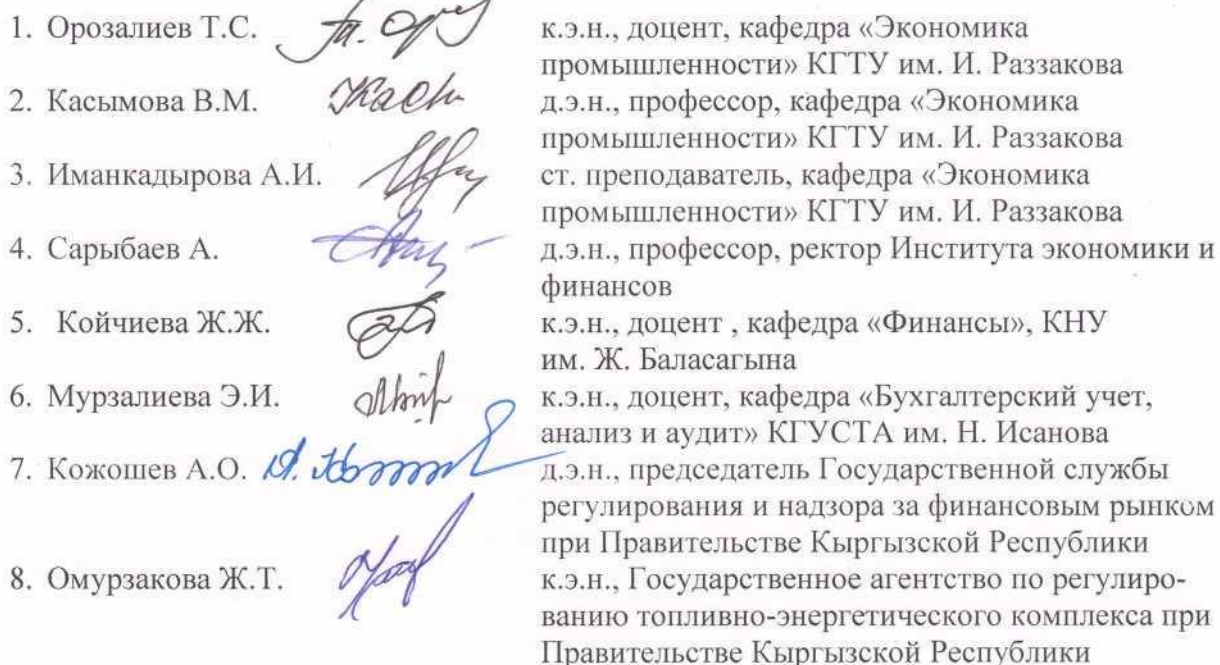 1. Орозалиев Т.С. к.э.н., доцент, кафедра «Экономика
промышленности» КГТУ им. И. Раззакова
2. Касымова В.М. д.э.н., профессор, кафедра «Экономика
промышленности» КГТУ им. И. Раззакова
3. Иманкадырова А.И. ст. преподаватель, кафедра «Экономика
промышленности» КГТУ им. И. Раззакова
4. Сарыбаев А. д.э.н., профессор, ректор Института экономики и
финансов
5. Койчиева Ж.Ж. к.э.н., доцент , кафедра «Финансы», КНУ
им. Ж. Баласагына
6. Мурзалиева Э.И. к.э.н., доцент, кафедра «Бухгалтерский учет,
анализ и аудит» КГУСТА им. Н. Исанова
7. Кожошев А.О. д.э.н., председатель Государственной службы
регулирования и надзора за финансовым рынком
при Правительстве Кыргызской Республики
8. Омурзакова Ж.Т. к.э.н., Государственное агентство по регулиро-
ванию топливно-энергетического комплекса при
Правительстве Кыргызской Республики